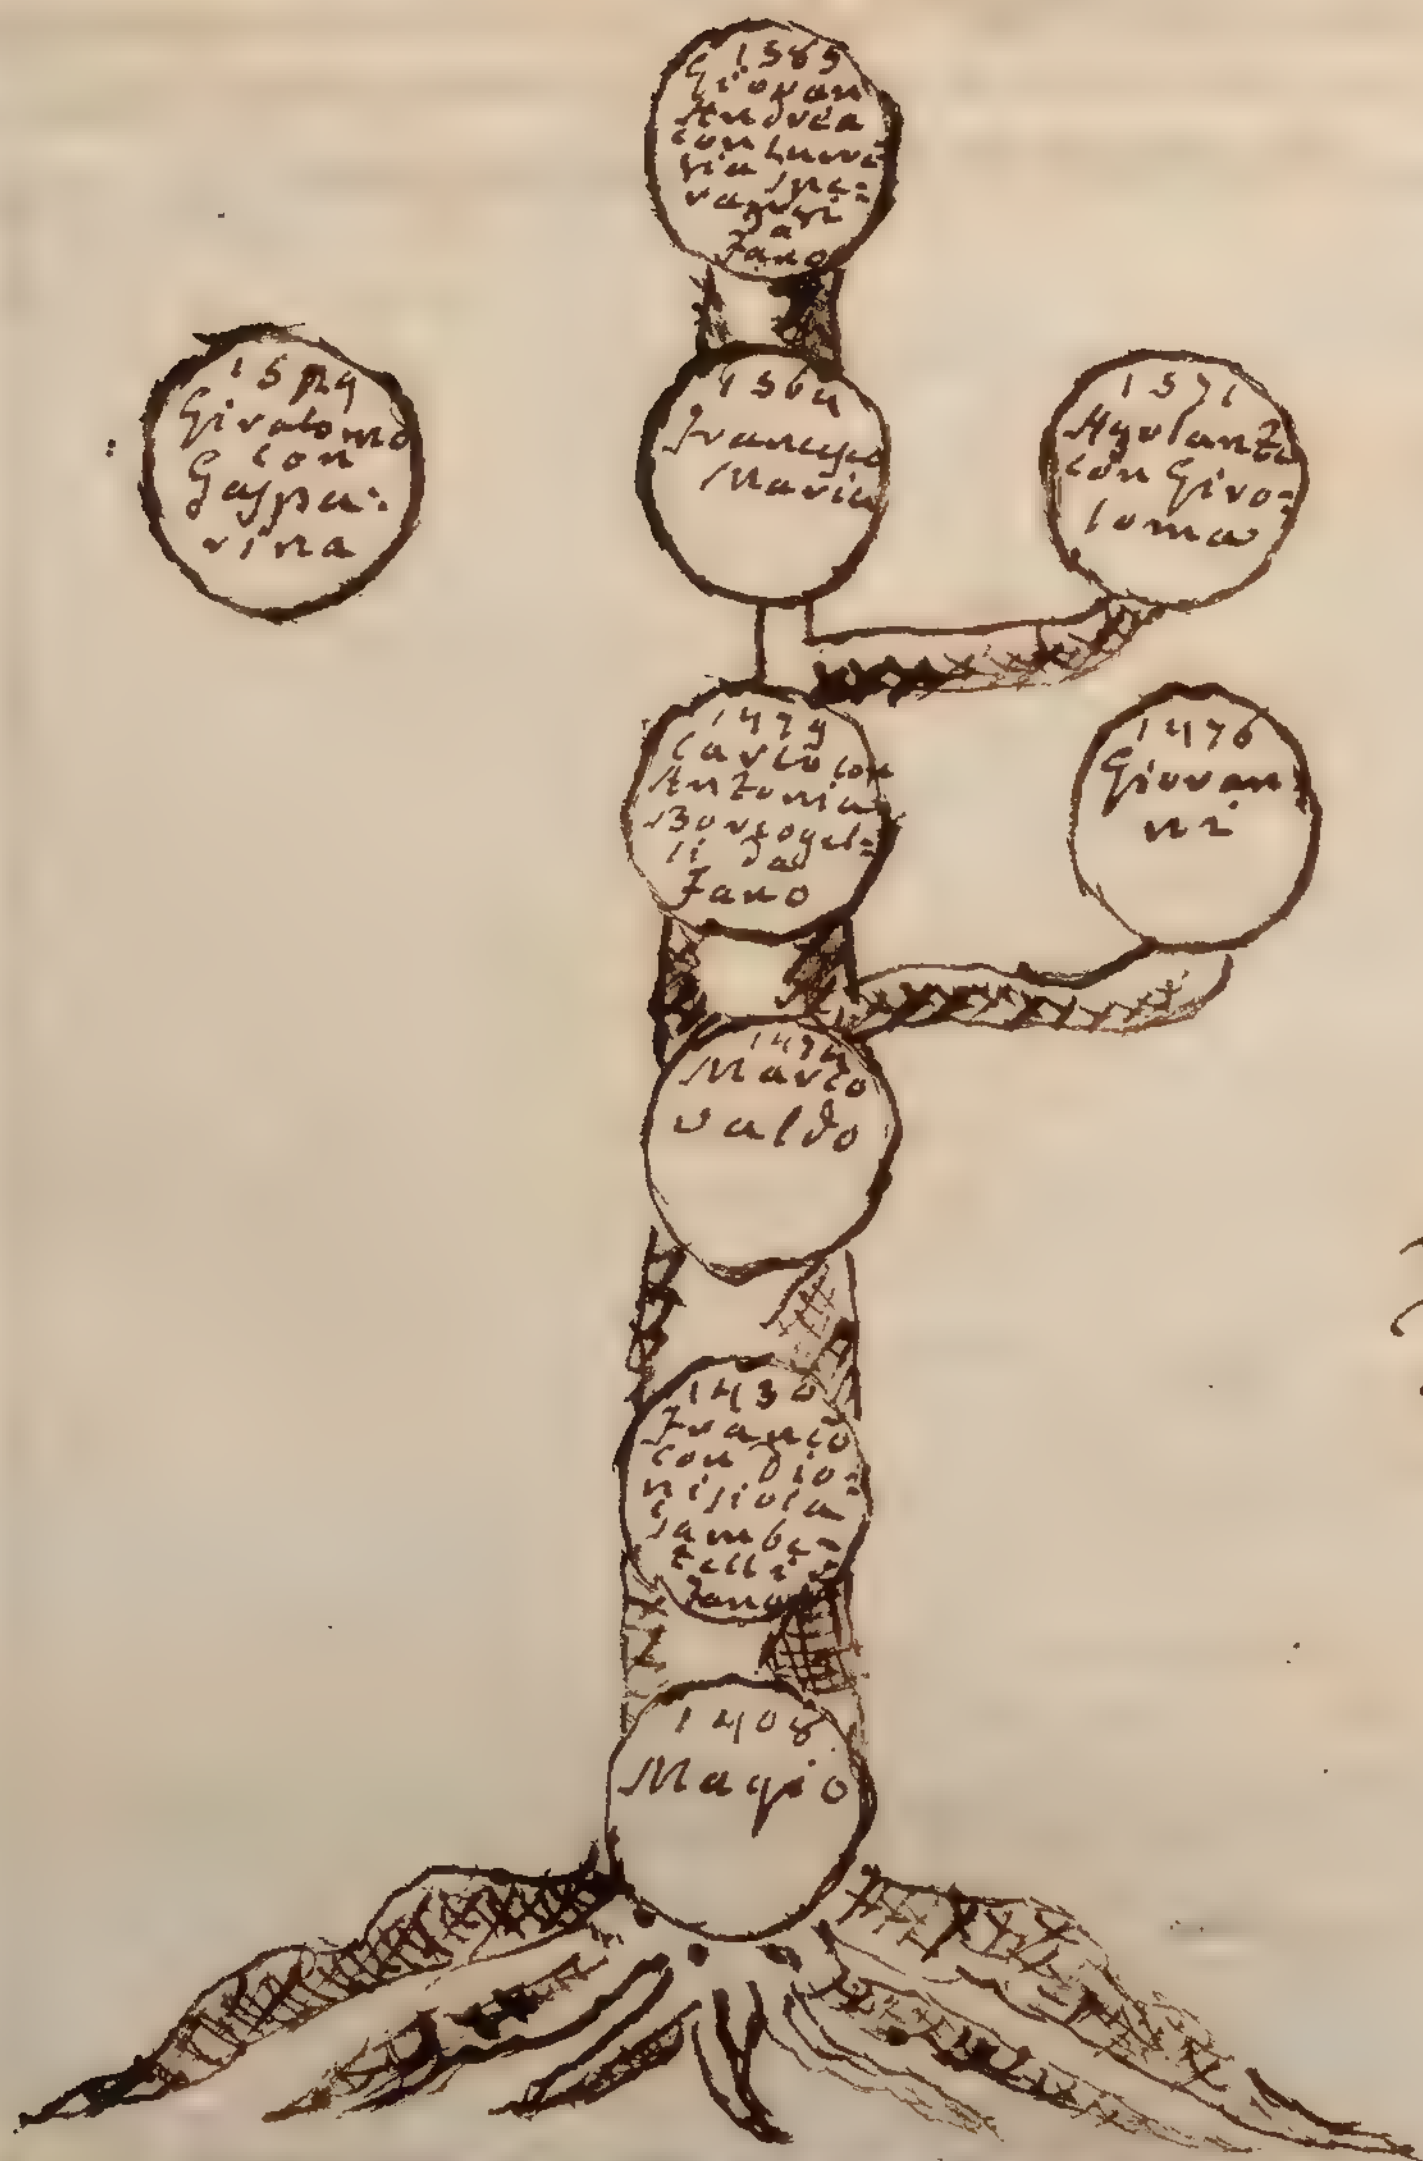 1585
Giovan
Andrea
con Lucre
zia Spe=
a
Fano
1529
Girolomo
con
Gaspa=
rina
1564
Francesco
Maria
1571
Agolante
con Giro=
loma
1479
Carlo con
Antonia
Borgogel=
li da
Fano
1476
Giovan
ni
1474
Marco
valdo
1430
Franco
con Dio=
nisiola
Gambi=
telli
Fano
1408
Magio